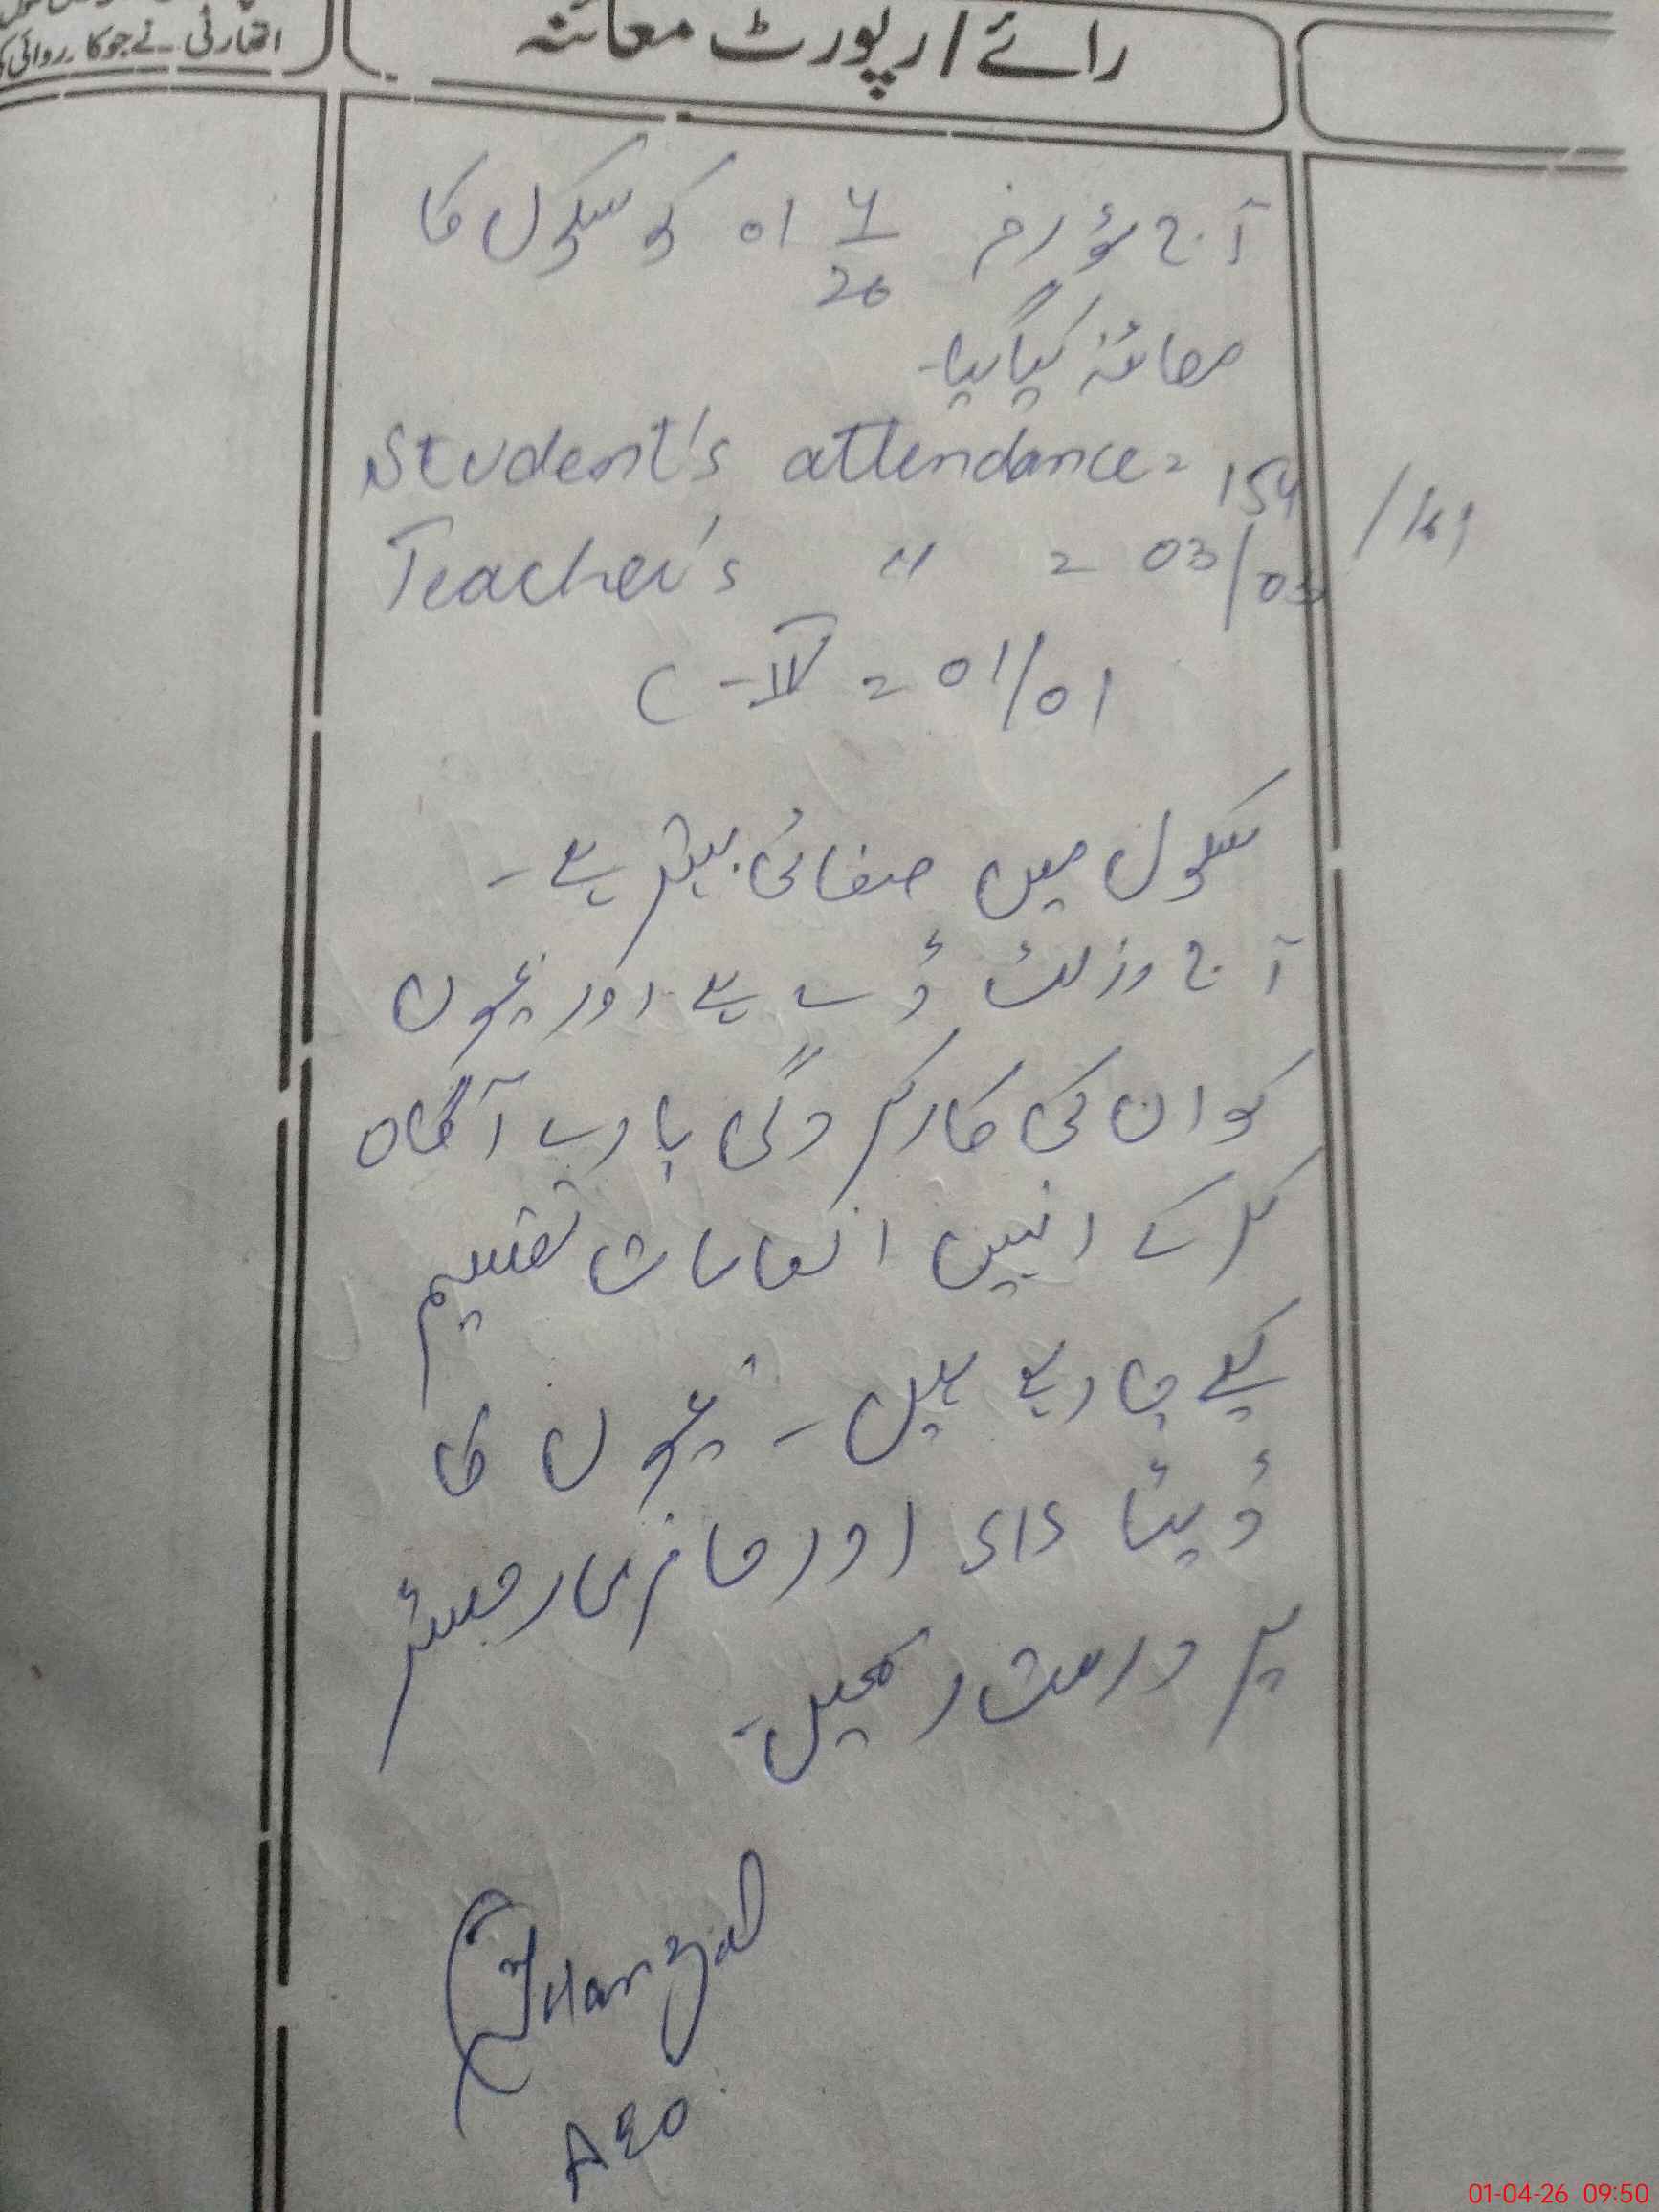 اتھارٹی نے جو کارروائی
رائے / رپورٹ معائنہ
آج مؤرخہ 01 4/26 کو سکول کا
معائنہ کیا گیا۔
Student's attendance = 154 / 161
Teacher's " = 03/03
C-IV = 01/01
سکول میں صفائی بہتر ہے۔
آج رزلٹ ڈے ہے اور بچوں
کو ان کی کارکردگی بارے آگاہ
کر کے انہیں انعامات تقسیم
کیے جا رہے ہیں۔ بچوں کا
ڈیٹا SIS اور حاضری رجسٹر
پر درست رکھیں۔
AEO
01-04-26 09:50